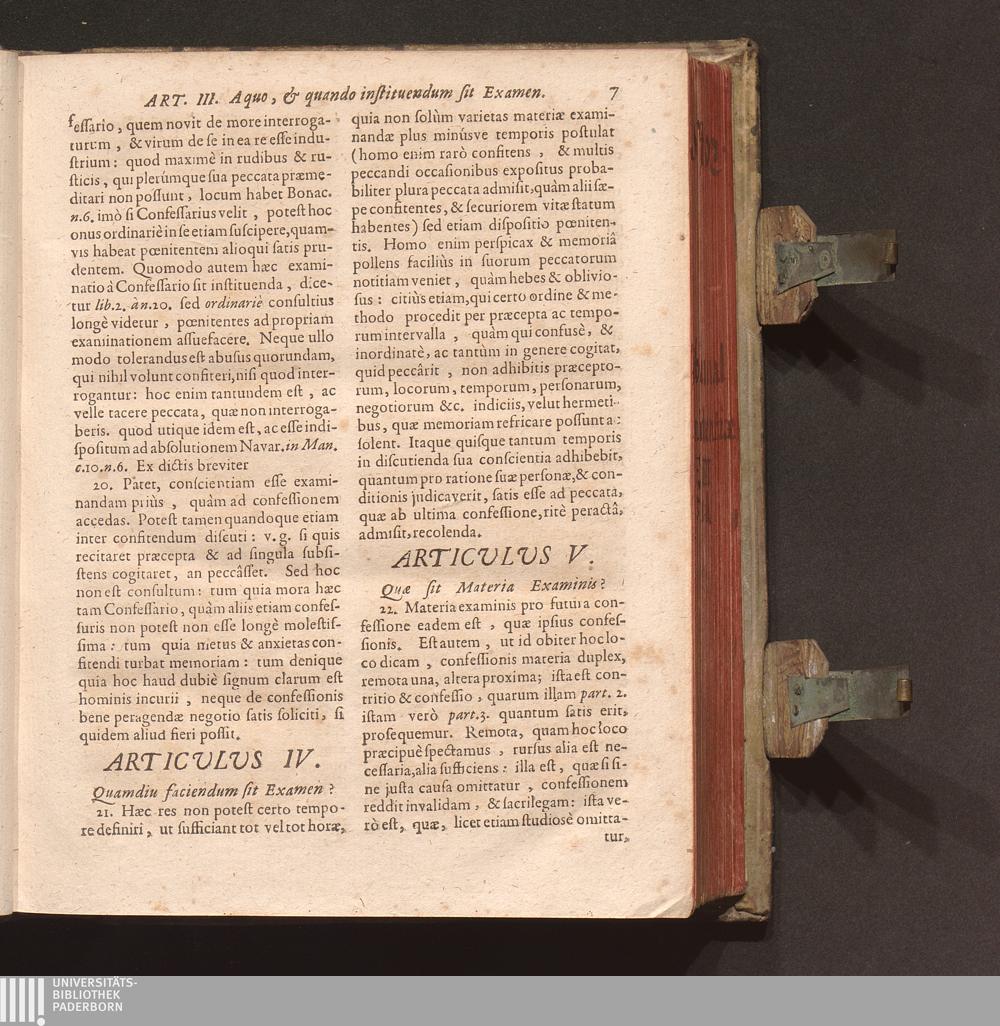 ART. III. A quo, & quando inſtituendum ſit Examen. 7
feſſario, quem novit de more interroga-
turum, & virum de ſe in ea re eſſe indu-
ſtrium: quod maximè in rudibus & ru-
ſticis, qui plerúmque ſua peccata præme-
ditari non poſſunt, locum habet Bonac.
n.6. imò ſi Confeſſarius velit, poteſt hoc
onus ordinariè in ſe etiam ſuſcipere, quam-
vis habeat pœnitentem alioqui ſatis pru-
dentem. Quomodo autem hæc exami-
natio à Confeſſario ſit inſtituenda, dice-
tur lib.2. àn.20. ſed ordinariè conſultius
longè videtur, pœnitentes ad propriam
examinationem aſſuefacere. Neque ullo
modo tolerandus eſt abuſus quorundam,
qui nihil volunt confiteri, niſi quod inter-
rogantur: hoc enim tantundem eſt, ac
velle tacere peccata, quæ non interroga-
beris. quod utique idem eſt, ac eſſe indi-
ſpoſitum ad abſolutionem Navar. in Man.
c.10.n.6. Ex dictis breviter
20. Patet, conſcientiam eſſe exami-
nandam priùs, quàm ad confeſſionem
accedas. Poteſt tamen quandoque etiam
inter confitendum diſcuti: v. g. ſi quis
recitaret præcepta & ad ſingula ſubſi-
ſtens cogitaret, an peccâſſet. Sed hoc
non eſt conſultum: tum quia mora hæc
tam Confeſſario, quàm aliis etiam confeſ-
ſuris non poteſt non eſſe longè moleſtiſ-
ſima: tum quia metus & anxietas con-
fitendi turbat memoriam: tum denique
quia hoc haud dubiè ſignum clarum eſt
hominis incurii, neque de confeſſionis
bene peragendæ negotio ſatis ſoliciti, ſi
quidem aliud fieri poſſit.
ARTICVLVS IV.
Quamdiu faciendum ſit Examen?
21. Hæc res non poteſt certo tempo-
re definiri, ut ſufficiant tot vel tot horæ,
quia non ſolùm varietas materiæ exami-
nandæ plus minúsve temporis poſtulat
(homo enim rarò confitens, & multis
peccandi occaſionibus expoſitus proba-
biliter plura peccata admiſit, quàm alii ſæ-
pe confitentes, & ſecuriorem vitæ ſtatum
habentes) ſed etiam diſpoſitio pœniten-
tis. Homo enim perſpicax & memoriâ
pollens faciliùs in ſuorum peccatorum
notitiam veniet, quàm hebes & oblivio-
ſus: citiùs etiam, qui certo ordine & me-
thodo procedit per præcepta ac tempo-
rum intervalla, quàm qui confusè, &
inordinatè, ac tantùm in genere cogitat,
quid peccârit, non adhibitis præcepto-
rum, locorum, temporum, perſonarum,
negotiorum &c. indiciis, velut hermeti-
bus, quæ memoriam refricare poſſunt a:
ſolent. Itaque quiſque tantum temporis
in diſcutienda ſua conſcientia adhibebit,
quantum pro ratione ſuæ perſonæ, & con-
ditionis judicaverit, ſatis eſſe ad peccata,
quæ ab ultima confeſſione, ritè peractâ,
admiſit, recolenda.
ARTICVLVS V.
Quæ ſit Materia Examinis?
22. Materia examinis pro futura con-
feſſione eadem eſt, quæ ipſius confeſ-
ſionis. Eſt autem, ut id obiter hoc lo-
co dicam, confeſſionis materia duplex,
remota una, altera proxima; iſta eſt con-
tritio & confeſſio, quarum illam part. 2.
iſtam verò part.3. quantum ſatis erit,
proſequemur. Remota, quam hoc loco
præcipuè ſpectamus, rurſus alia eſt ne-
ceſſaria, alia ſufficiens: illa eſt, quæ ſi ſi-
ne juſta cauſa omittatur, confeſſionem
reddit invalidam, & ſacrilegam: iſta ve-
rò eſt, quæ, licet etiam ſtudiosè omitta-
tur,
UNIVERSITÄTS-
BIBLIOTHEK
PADERBORN